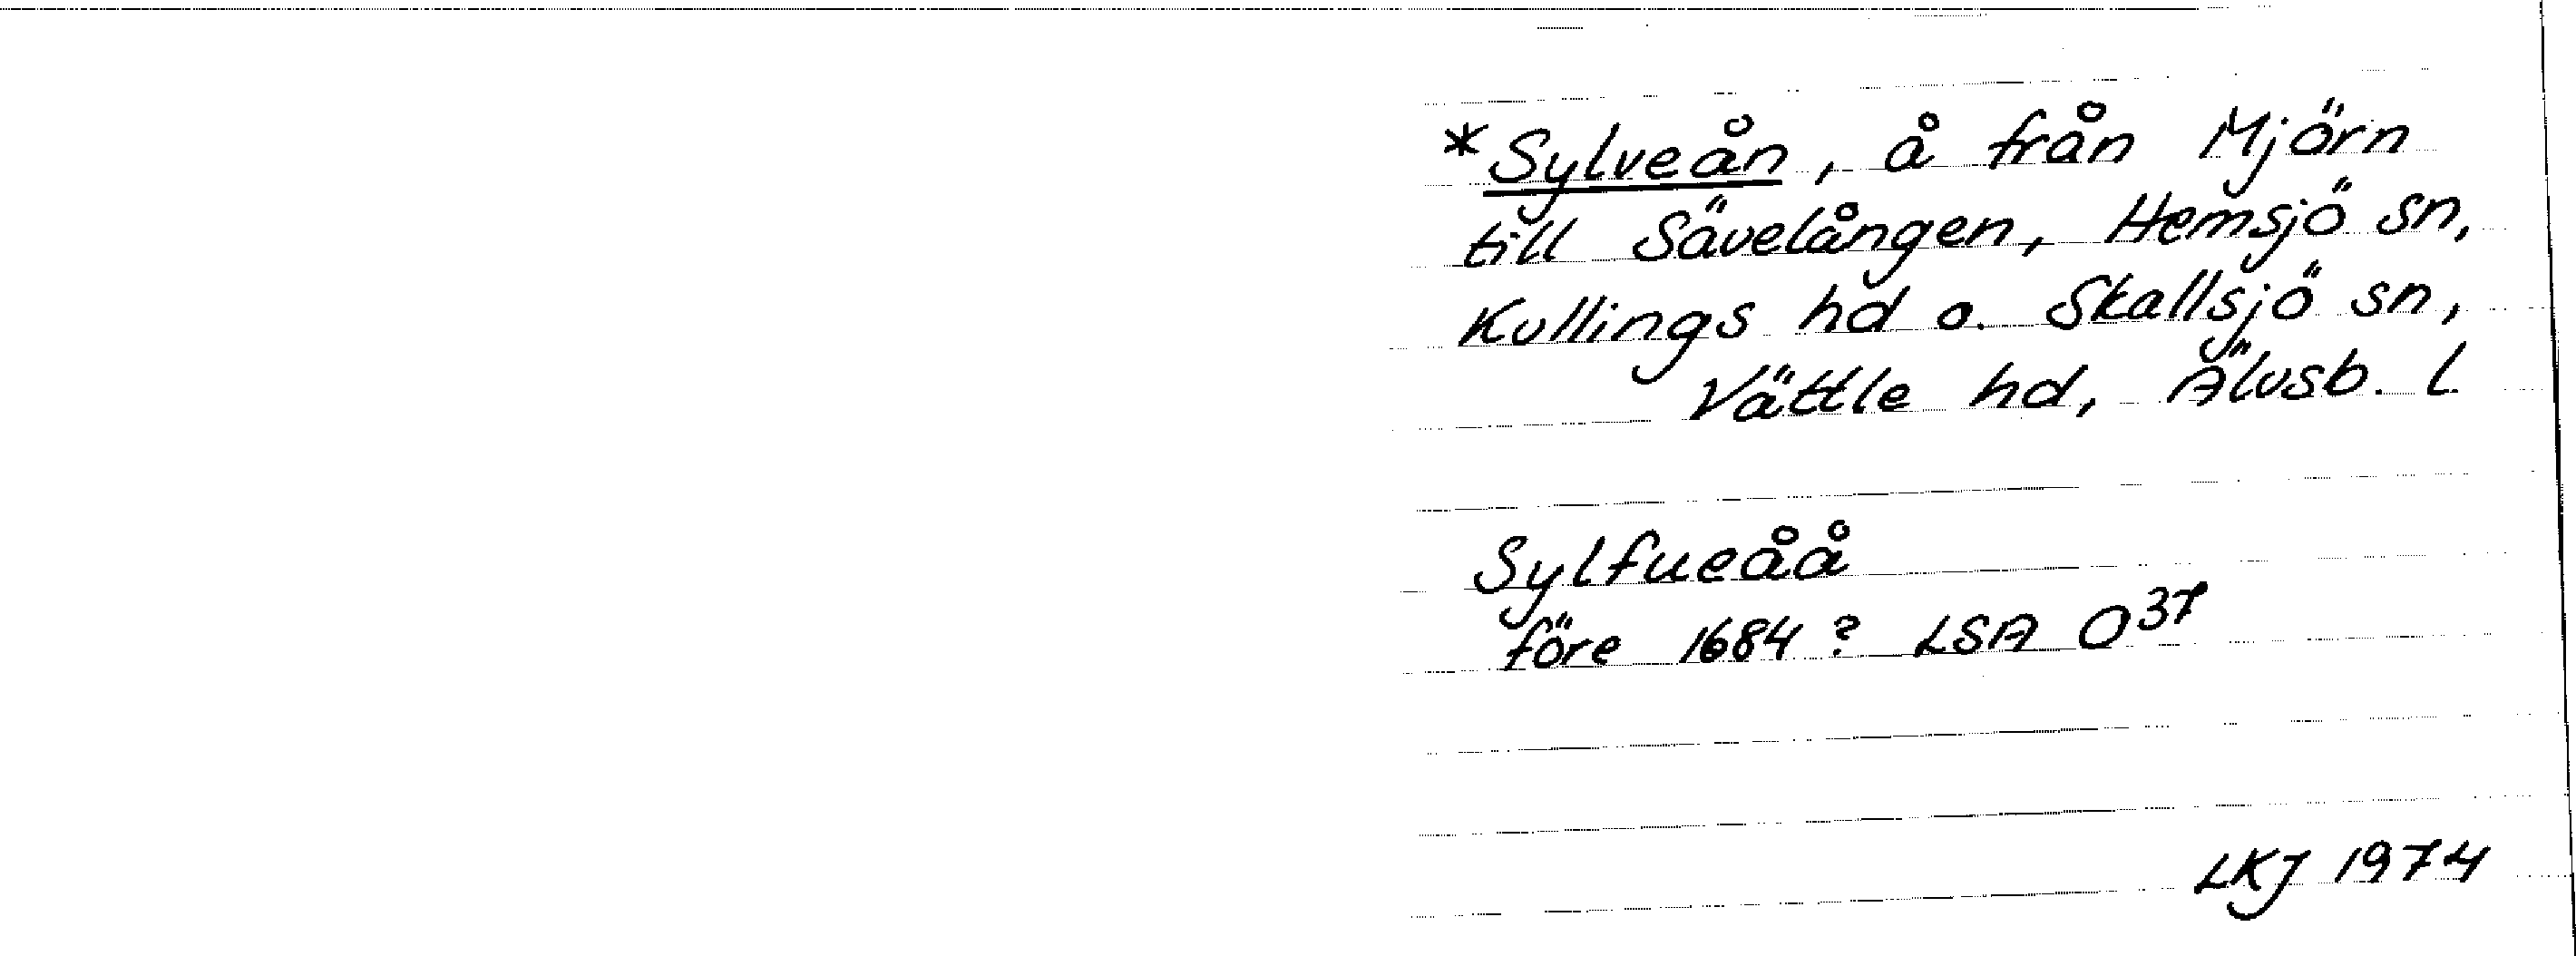 *Sylveån, å från Mjörn
till Sävelången, Hemsjö sn,
Kullings hd o. Skallsjö sn,
Vättle hd, Älvsb. l
Sylfueåå
före 1684? LSA O³⁷
LKJ 1974